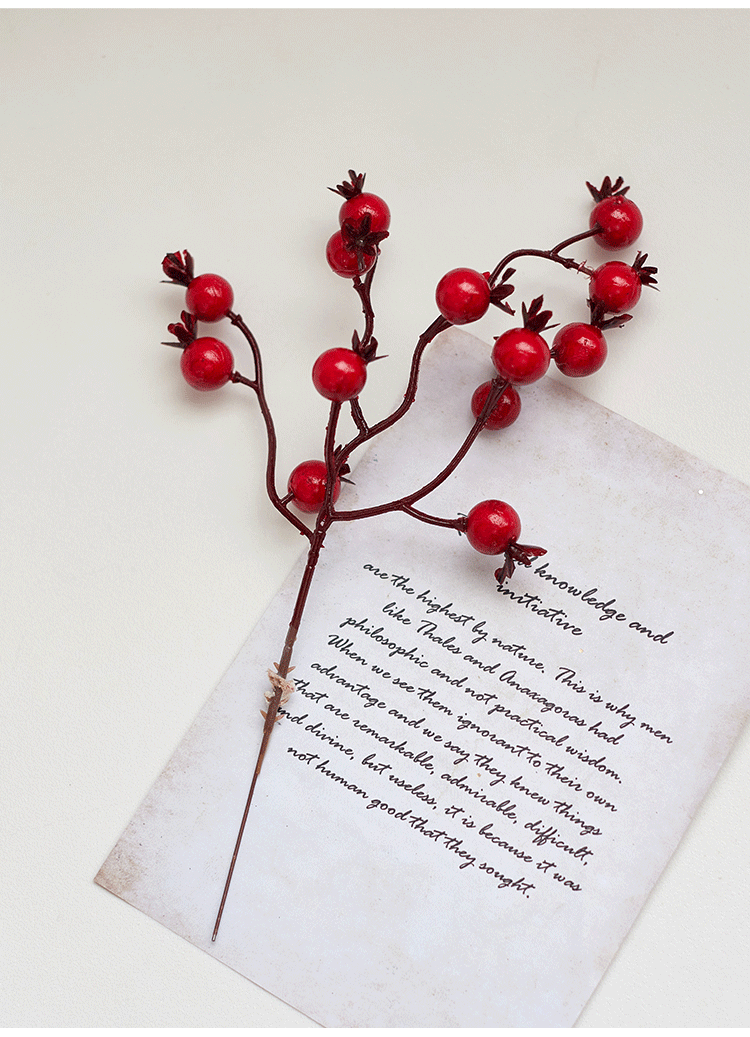 knowledge and
initiative
are the highest by nature. This is why men
like Thales and Anaxagoras had
philosophic and not practical wisdom.
When we see them ignorant to their own
advantage and we say they knew things
that are remarkable, admirable, difficult,
and divine, but useless, it is because it was
not human good that they sought.